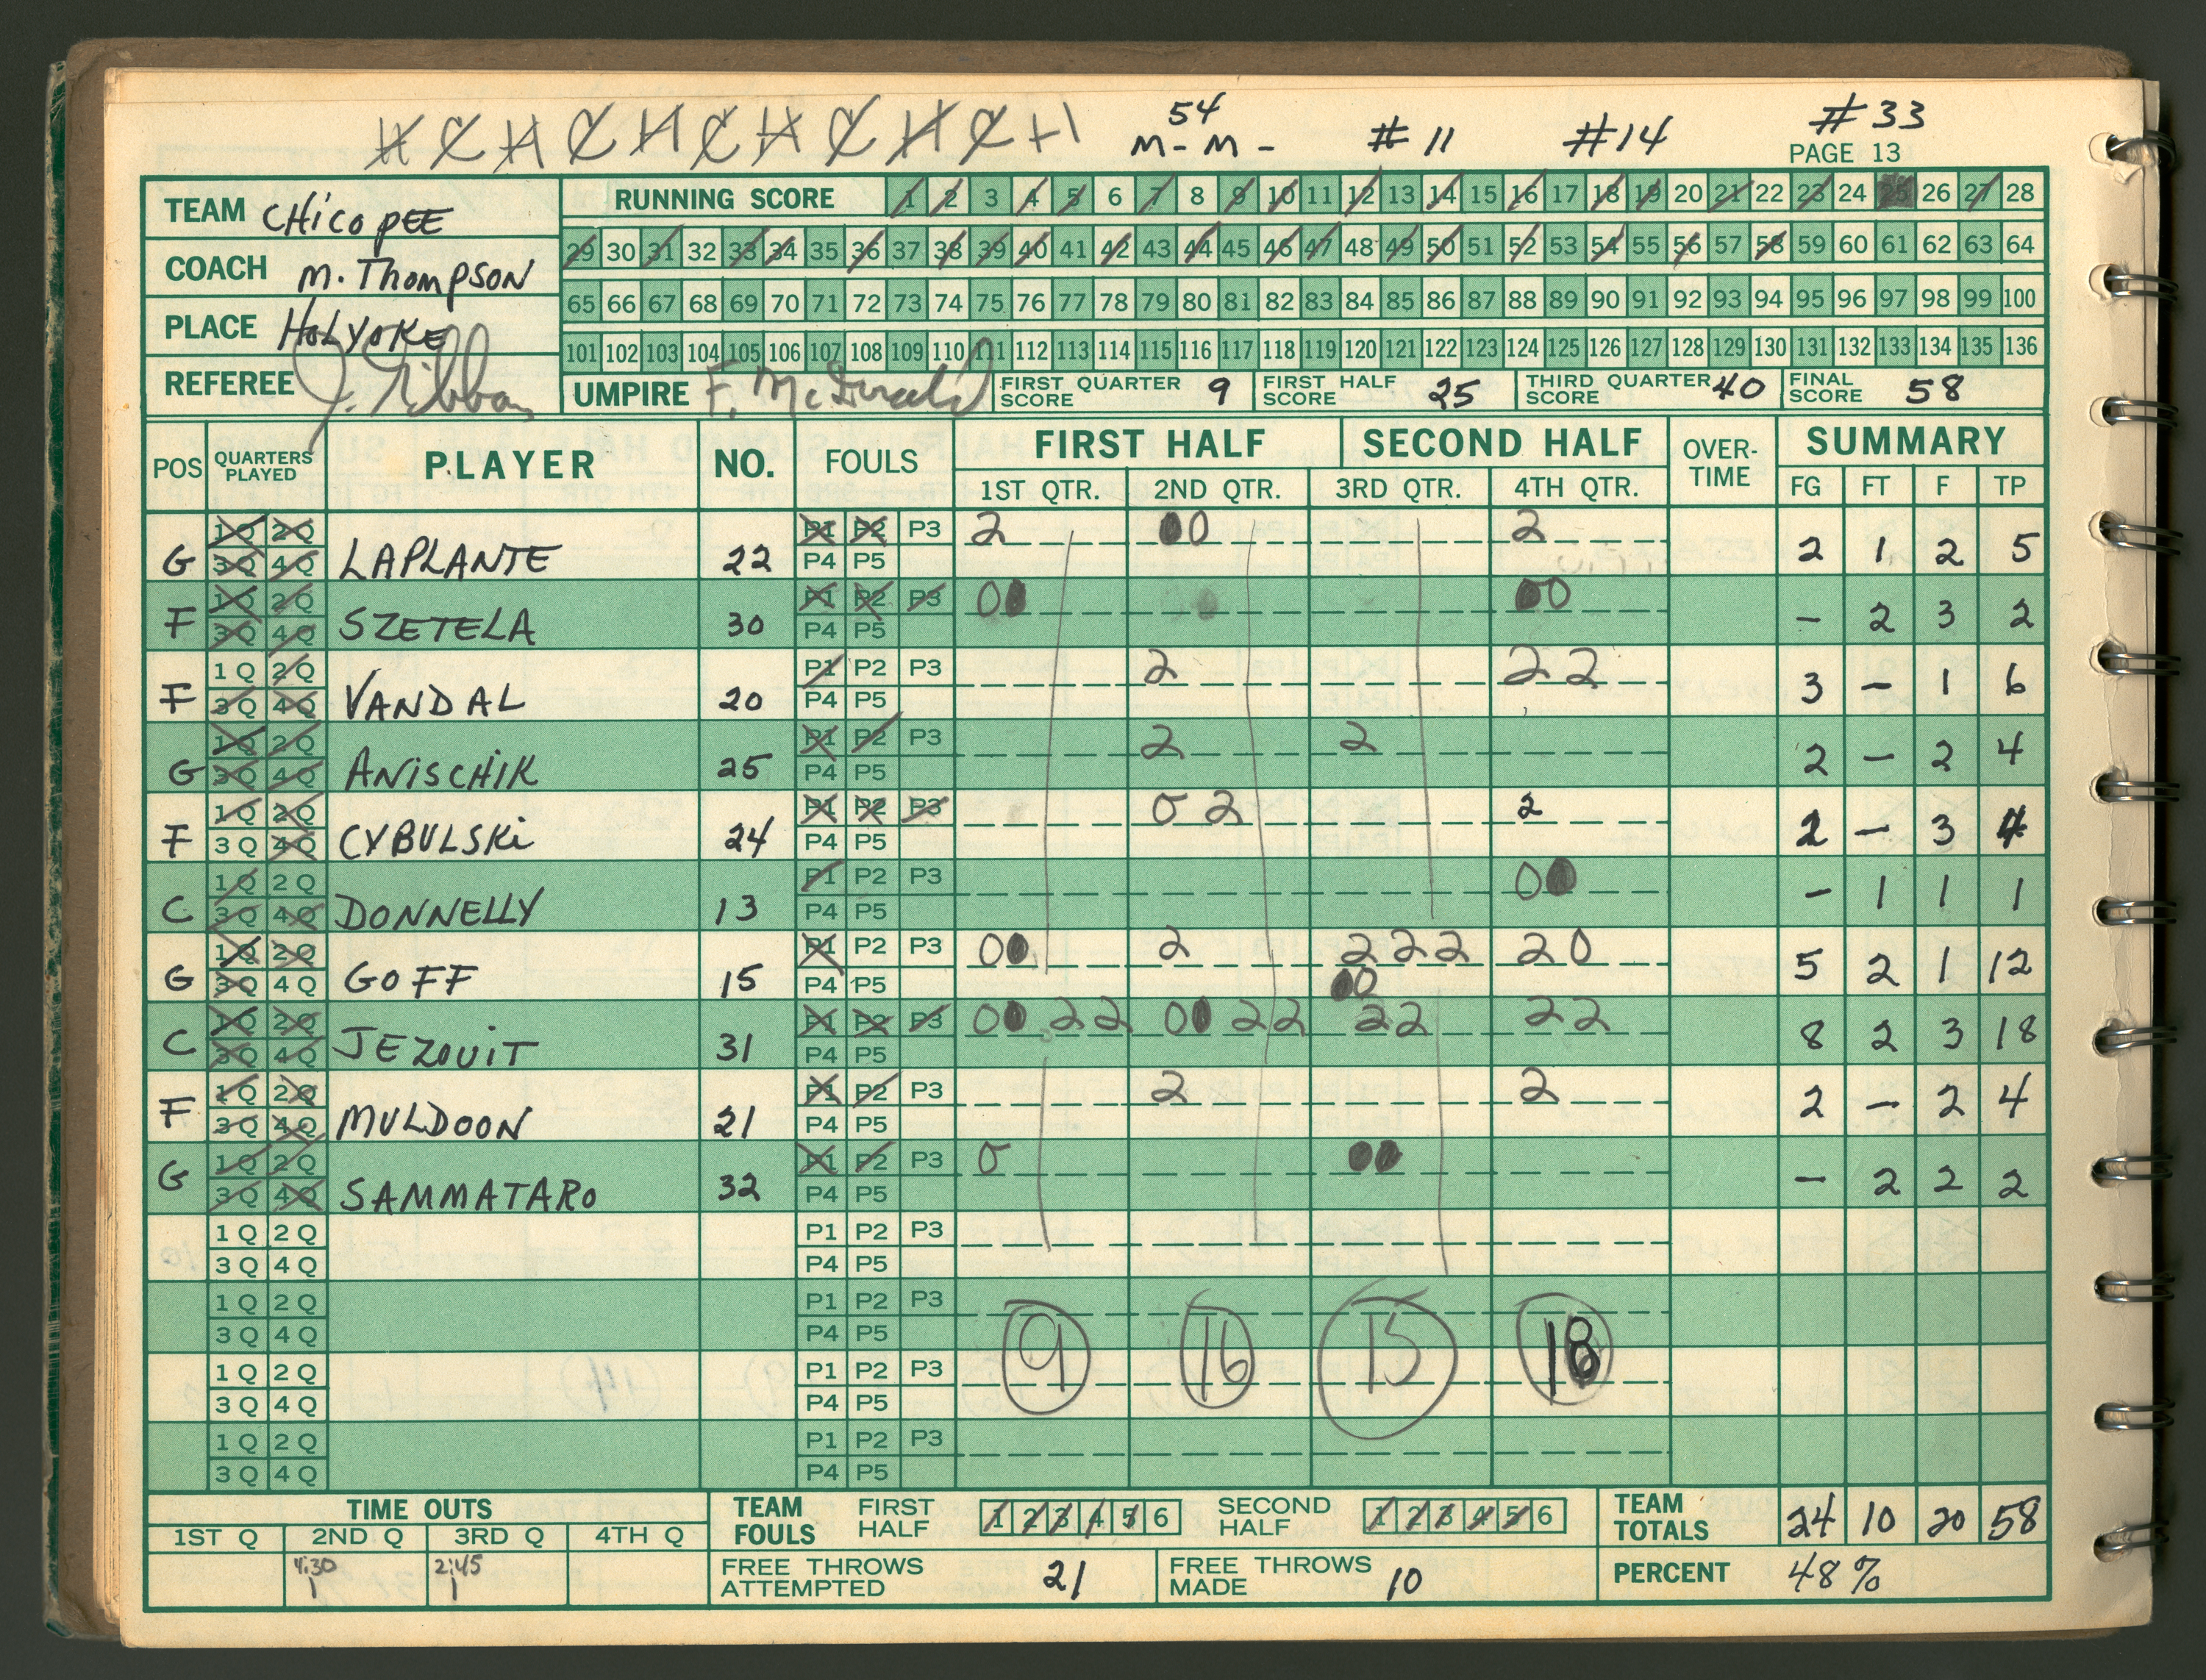 H C H C H C H C H C H
54
M - M - # 11 #14 #33
PAGE 13
TEAM CHICOPEE
COACH M. THOMPSON
PLACE HOLYOKE
REFEREE
RUNNING SCORE 1 2 3 4 5 6 7 8 9 10 11 12 13 14 15 16 17 18 19 20 21 22 23 24 25 26 27 28
29 30 31 32 33 34 35 36 37 38 39 40 41 42 43 44 45 46 47 48 49 50 51 52 53 54 55 56 57 58 59 60 61 62 63 64
65 66 67 68 69 70 71 72 73 74 75 76 77 78 79 80 81 82 83 84 85 86 87 88 89 90 91 92 93 94 95 96 97 98 99 100
101 102 103 104 105 106 107 108 109 110 111 112 113 114 115 116 117 118 119 120 121 122 123 124 125 126 127 128 129 130 131 132 133 134 135 136
UMPIRE F. McDonald FIRST QUARTER SCORE 9 FIRST HALF SCORE 25 THIRD QUARTER SCORE 40 FINAL SCORE 58
POS QUARTERS PLAYED PLAYER NO. FOULS FIRST HALF SECOND HALF OVER-TIME SUMMARY
1ST QTR. 2ND QTR. 3RD QTR. 4TH QTR. FG FT F TP
1 Q 2 Q P1 P2 P3 2 00 2
G 3 Q 4 Q LAPLANTE 22 P4 P5 2 1 2 5
1 Q 2 Q P1 P2 P3 00 00
F 3 Q 4 Q SZETELA 30 P4 P5 – 2 3 2
1 Q 2 Q P1 P2 P3 2 2 2
F 3 Q 4 Q VANDAL 20 P4 P5 3 – 1 6
1 Q 2 Q P1 P2 P3 2 2
G 3 Q 4 Q ANISCHIK 25 P4 P5 2 – 2 4
1 Q 2 Q P1 P2 P3 0 2 2
F 3 Q 4 Q CYBULSKI 24 P4 P5 2 – 3 4
1 Q 2 Q P1 P2 P3 00
C 3 Q 4 Q DONNELLY 13 P4 P5 – 1 1 1
1 Q 2 Q P1 P2 P3 00 2 2 2 2 2 0
G 3 Q 4 Q GOFF 15 P4 P5 00 5 2 1 12
1 Q 2 Q P1 P2 P3 00 2 2 00 2 2 2 2 2 2
C 3 Q 4 Q JEZOUIT 31 P4 P5 8 2 3 18
1 Q 2 Q P1 P2 P3 2 2
F 3 Q 4 Q MULDOON 21 P4 P5 2 – 2 4
1 Q 2 Q P1 P2 P3 0 00
G 3 Q 4 Q SAMMATARO 32 P4 P5 – 2 2 2
1 Q 2 Q P1 P2 P3
3 Q 4 Q P4 P5
1 Q 2 Q P1 P2 P3
3 Q 4 Q P4 P5 9 16 15 18
1 Q 2 Q P1 P2 P3
3 Q 4 Q P4 P5
1 Q 2 Q P1 P2 P3
3 Q 4 Q P4 P5
TIME OUTS
1ST Q 2ND Q 3RD Q 4TH Q
4:30 2:45
1 1
TEAM FOULS FIRST HALF 1 2 3 4 5 6 SECOND HALF 1 2 3 4 5 6
FREE THROWS ATTEMPTED 21 FREE THROWS MADE 10
TEAM TOTALS 24 10 20 58
PERCENT 48%